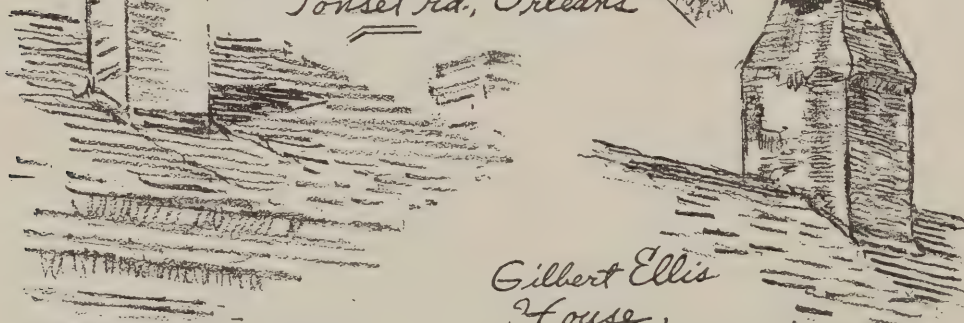 Tonset Rd., Orleans
Gilbert Ellis
House,